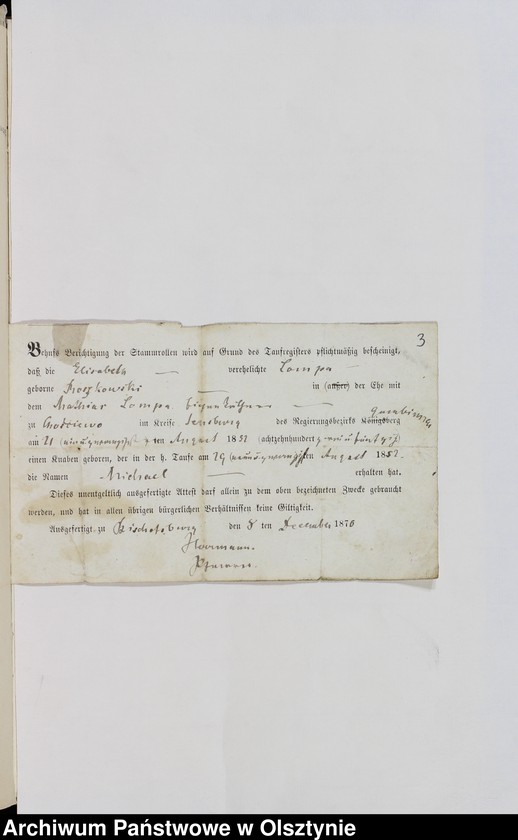 3
Behufs Berichtigung der Stammrollen wird auf Grund des Taufregisters pflichtmäßig bescheinigt,
daß die Elisabeth verehelichte Lompa
geborne Kroszkowski in (außer) der Ehe mit
dem Mathias Lompa
Gumbinnen
zu im Kreise Sensburg des Regierungsbezirks Königsberg
am 21 (einundzwanzigsten August 1852 (achtzehnhundert zweiundfünfzig)
einen Knaben geboren, der in der h. Taufe am 29 (neunundzwanzigsten August 1852.
die Namen Michael erhalten hat.
Dieses unentgeltlich ausgefertigte Attest darf allein zu dem oben bezeichneten Zwecke gebraucht
werden, und hat in allen übrigen bürgerlichen Verhältnissen keine Giltigkeit.
Ausgefertigt zu Bischofsburg den 8 ten December 1870
Herrmann.
Pfarrer.
Archiwum Państwowe w Olsztynie